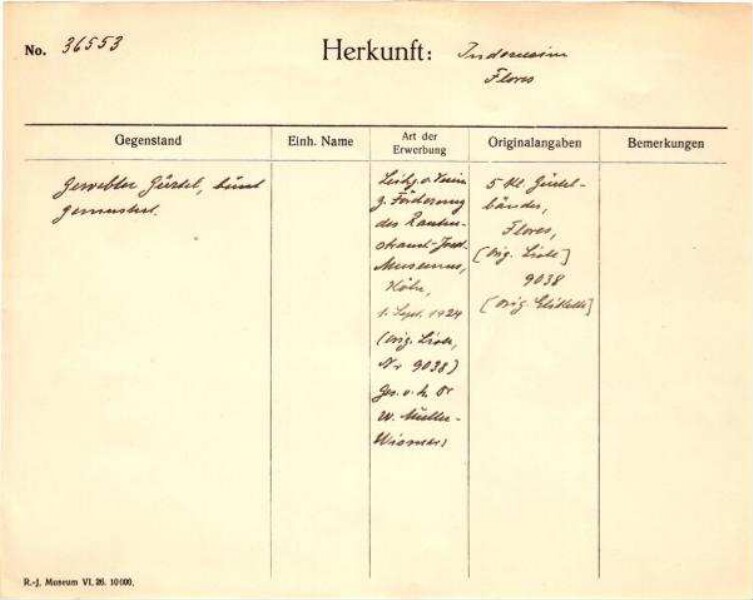 No. 36553
Herkunft: Indonesien
Flores
Gegenstand
Einh. Name
Art der Erwerbung
Originalangaben
Bemerkungen
Gewebter Gürtel, bunt
gemustert.
Leihg. v. Verein
z. Förderung
des Rauten-
strauch-Joest-
Museums,
Köln,
1. Sept. 1924
(orig. Liste,
Nr 9038)
Ges. v. H. Dr
W. Müller-
Wismar)
5 kl. Gürtel-
bänder,
Flores,
[orig. Liste]
9038
[orig. Etikette]
R.-J. Museum VI. 26. 10000.